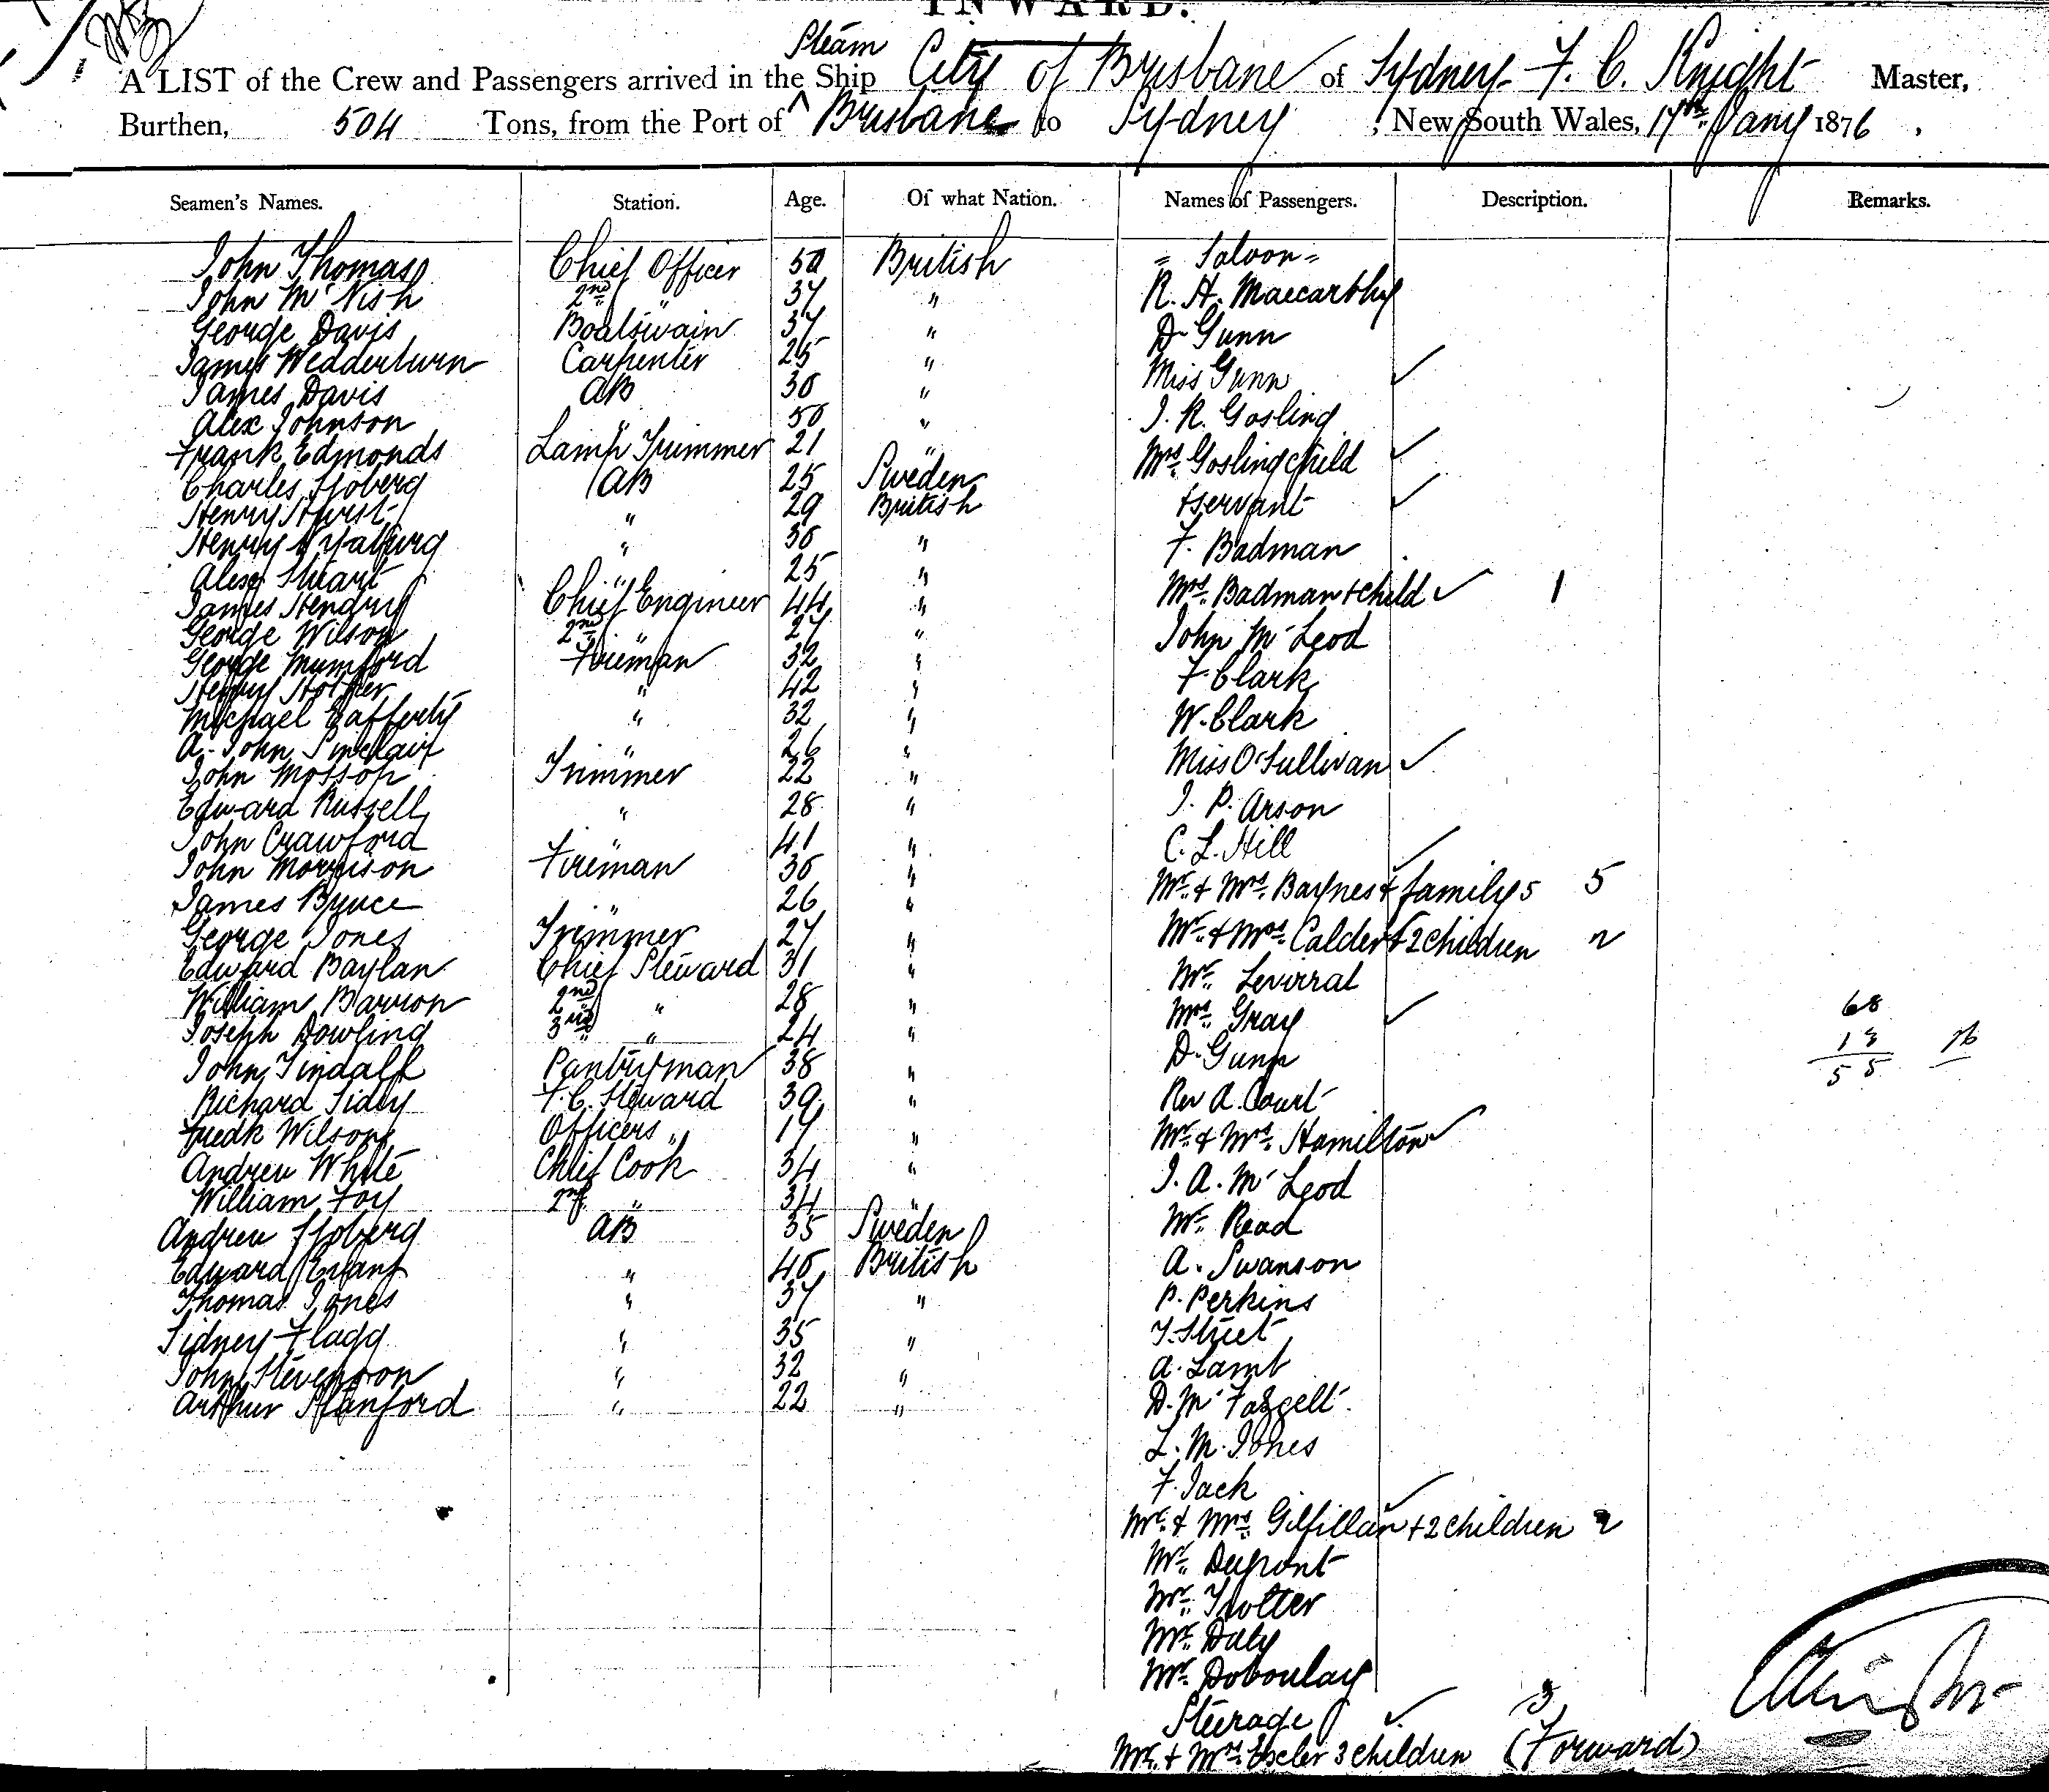 INWARD.
Steam
A LIST of the Crew and Passengers arrived in the Ship City of Brisbane of Sydney F. C. Knight Master,
Burthen, 504 Tons, from the Port of Brisbane to Sydney, New South Wales, 17th Jany 1876,
Seamen's Names. Station. Age. Of what Nation. Names of Passengers. Description. Remarks.
John Thomas Chief Officer 50 British
John McNish 2nd " 37 "
George Davis Boatswain 37 "
James Wedderburn Carpenter 25 "
James Davis AB 30 "
Alex Johnson " 50 "
Frank Edmonds Lamp Trimmer 21 "
Charles Sjoberg AB 25 Sweden
Henry Hurst " 29 British
Henry " 30 "
Alexr Stuart " 25 "
James Hendry Chief Engineer 44 "
George Wilson 2nd " 27 "
George Mumford Fireman 32 "
Henry " 42 "
Michael Gafferty " 32 "
A. John Sinclair " 26 "
John Mossop Trimmer 22 "
Edward Russell " 28 "
John Crawford " 41 "
John Morrison Fireman 30 "
James Bruce " 26 "
George Jones Trimmer 27 "
Edward Baylan Chief Steward 31 "
William Barron 2nd " 28 "
Joseph Dowling 3rd " 24 "
John Tindall Pantryman 38 "
Richard Sidey F.C. Steward 39 "
Fredk Wilson Officers " 17 "
Andrew White Chief Cook 34 "
William Foy 2nd " 34 "
Andrew Sjoberg AB 35 Sweden
Edward Evans " 40 British
Thomas Jones " 37 "
Sidney Flagg " 35 "
John Stevenson " 32 "
Arthur Stanford " 22 "
= Saloon =
R. H. Maccarthy
D. Gunn
Miss Gunn ✓
J. R. Gosling
Mrs. Gosling child ✓
+ servant ✓
F. Badman
Mrs. Badman + child ✓ 1
John McLeod
F. Clark
W. Clark
Miss O'Sullivan ✓
J. P. Arson
C. L. Hill
Mr. & Mrs. Baynes & family 5 5
Mr. & Mrs. Calder & 2 children 2
Mr. Levirral
Mrs. Gray ✓
D. Gunn
Rev A. Court
Mr. & Mrs. Hamilton ✓
J. A. McLeod
Mr. Read
A. Swanson
P. Perkins
T. Street
A. Lamb
D. M
L. M. Jones
F. Jack
Mr. & Mrs. Gilfillan + 2 children 2
Mr. Dupont
Mr. Trotter
Mr. Daly
Mr. Doboulay
Steerage ✓ 3
Mr. & Mrs. 3 children (Forward)
68
13 76
55